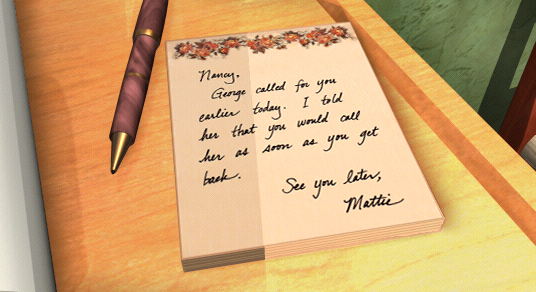 Nancy,
George called for you
earlier today. I told
her that you would call
her as soon as you get
back.
See you later,
Mattie